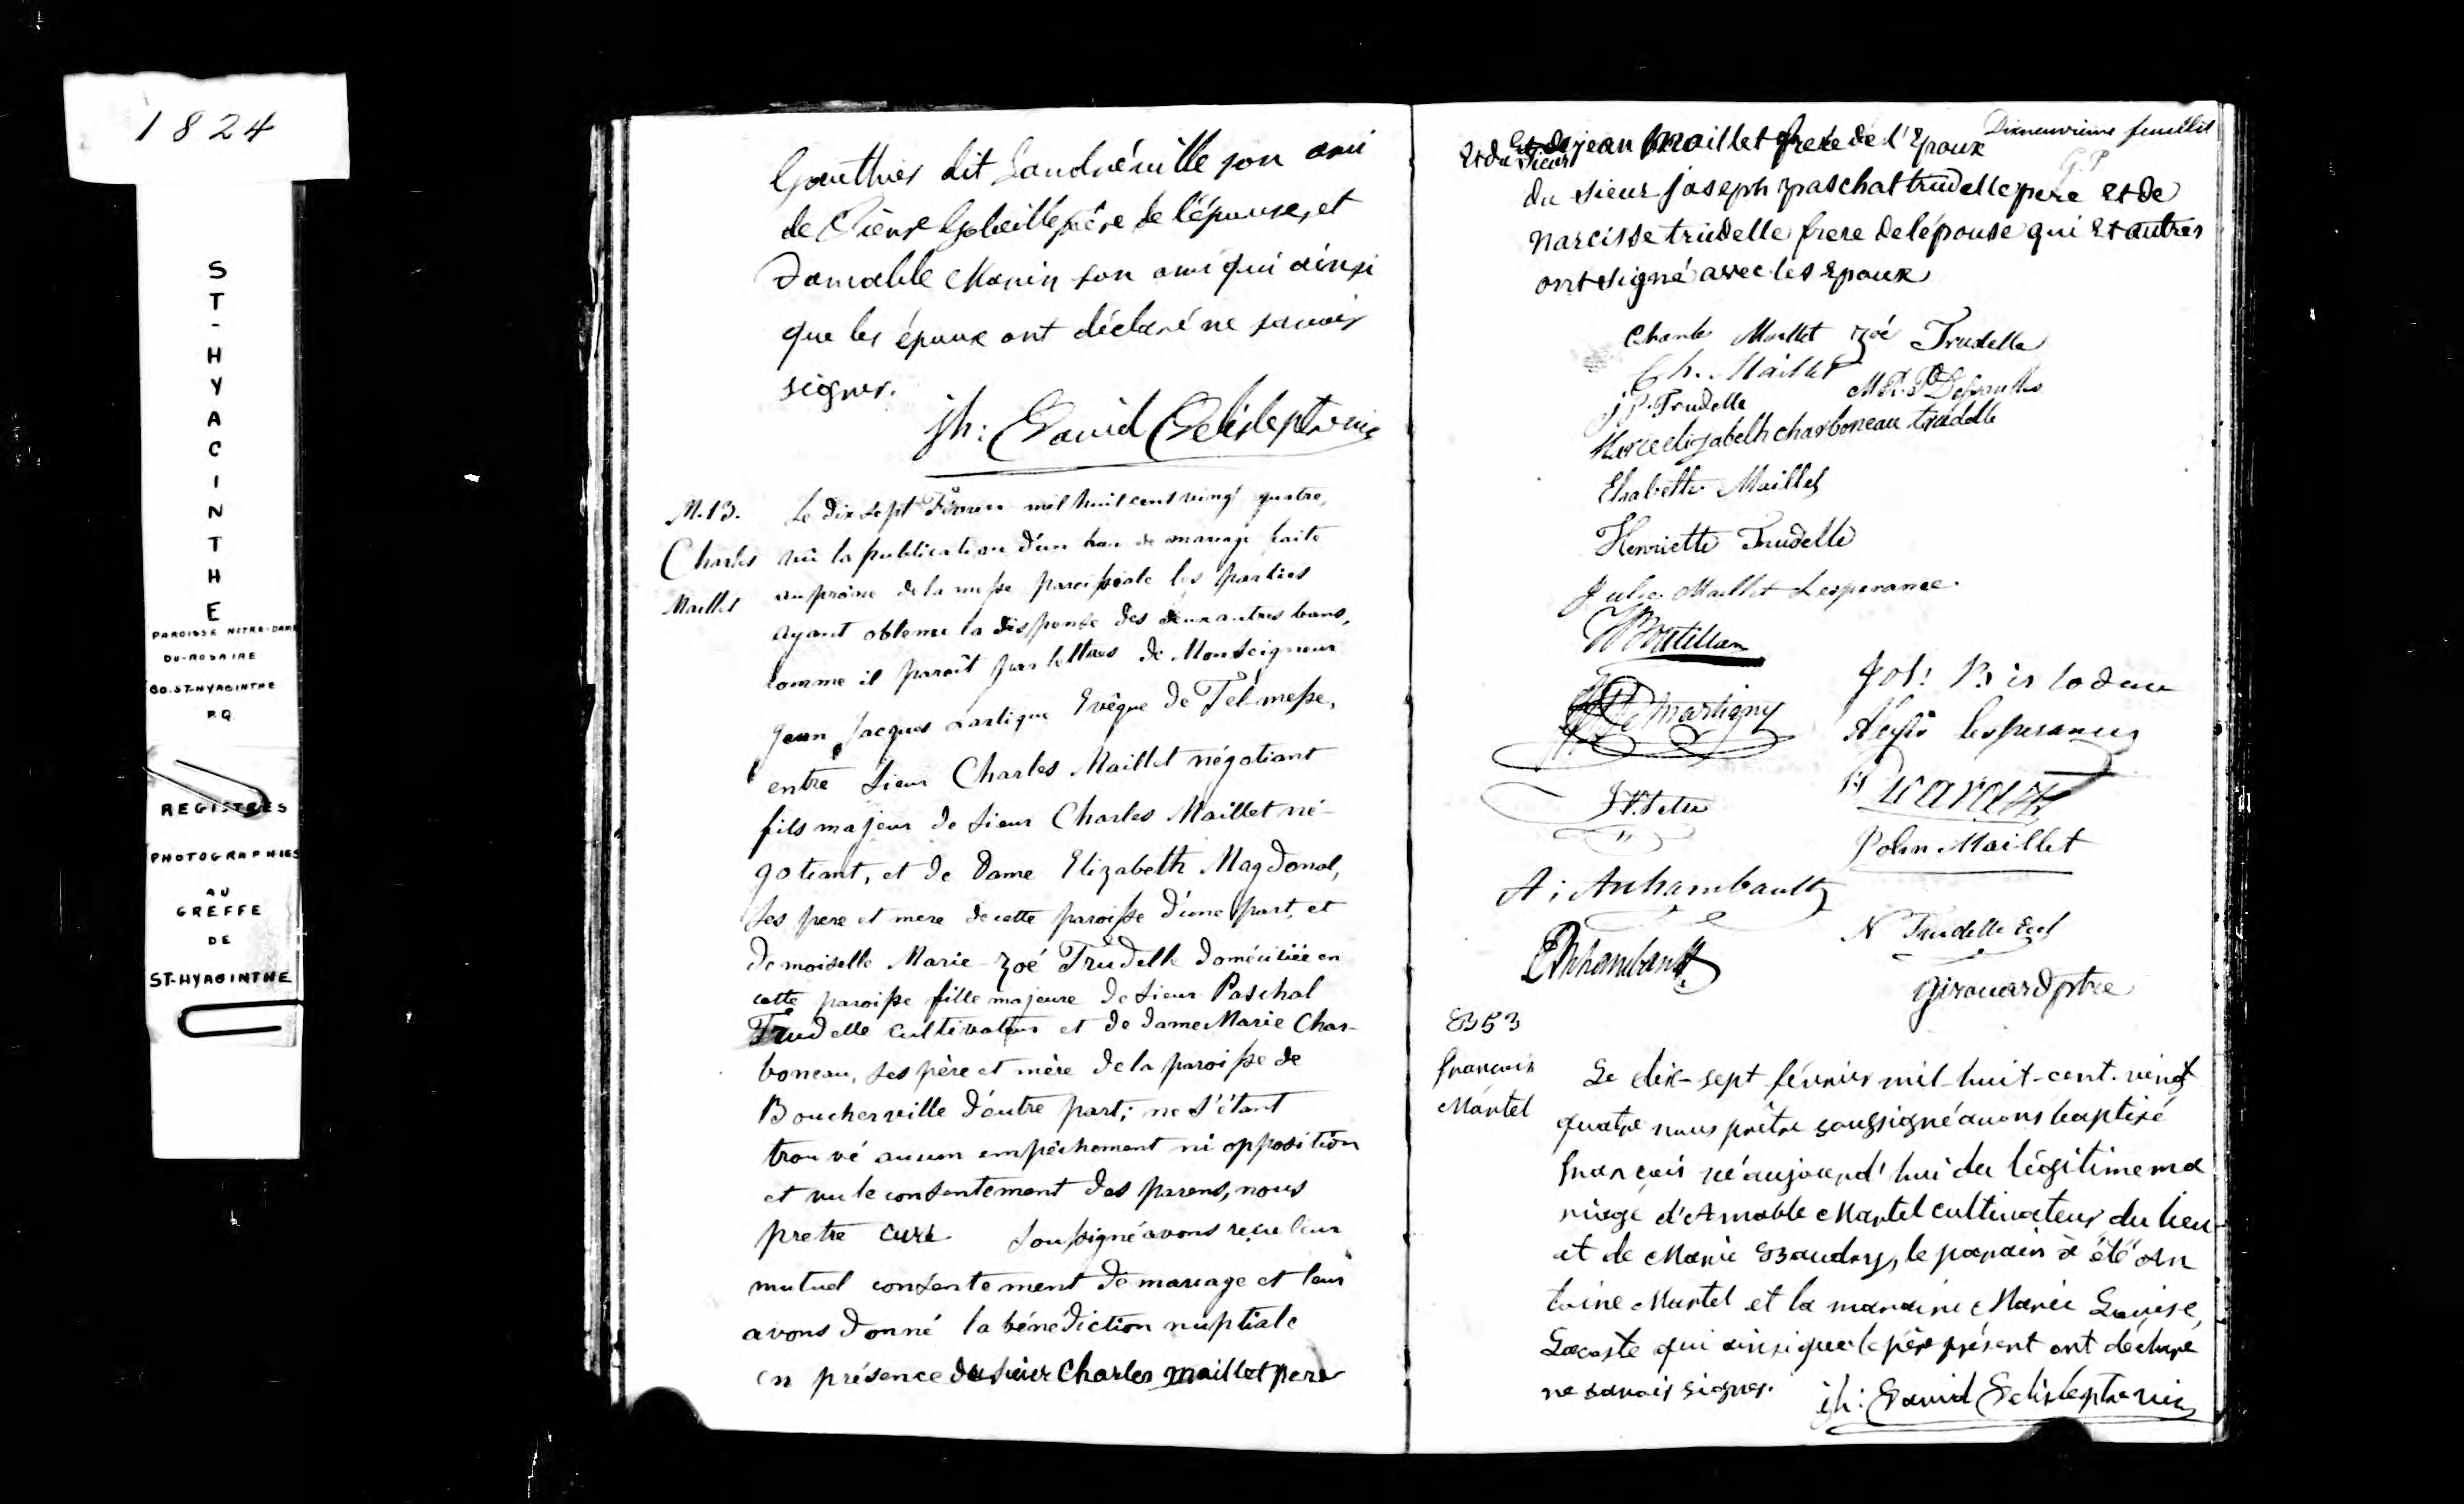 1824
S
T
-
H
Y
A
C
I
N
T
H
E
PAROISSE NOTRE-DAME
DU-ROSAIRE
CO. ST-HYACINTHE
P.Q.
REGISTRES
PHOTOGRAPHIES
AU
GREFFE
DE
ST-HYACINTHE
Gauthier dit Landréville son ami
de Pierre Gobeille père de l'épouse, et
d'amable Monin son ami qui ainsi
que les époux ont déclaré ne savoir
signer.
jh: David Delisle ptre vic
M.13.
Charles
Maillet
Le dix sept Février mil huit cent vingt quatre,
vû la publication d'un ban de mariage faite
au prône de la messe paroissiale les parties
ayant obtenu la dispense des deux autres bans,
comme il paroît par lettres de Monseigneur
Jean Jacques Lartigue Evêque de Telmesse,
entre Sieur Charles Maillet négotiant
fils majeur de Sieur Charles Maillet né-
gotiant, et de Dame Elizabeth Magdonol,
ses pere et mere de cette paroisse d'une part, et
demoiselle Marie-Zoé Trudelle domiciliée en
cette paroisse fille majeure de Sieur Paschal
Trudelle cultivateur et de dame Marie Char-
boneau, ses père et mère de la paroisse de
Boucherville d'autre part; ne s'étant
trouvé aucun empêchement ni opposition
et vu le consentement des parens, nous
pretre curé soussigné avons reçu leur
mutuel consentement de mariage et leur
avons donné la bénédiction nuptiale
en présence du sieur Charles maillet pere
Dixneuvieme feuillet
G.P
et du sieur jean maillet frere de l'Epoux
du sieur joseph paschal trudelle pere et de
narcisse trudelle frere de l'épouse qui et autres
ont signé avec les epoux
Charle Maillet Zoé Trudelle
Ch. Maillet
J P. Trudelle
elizabeth charboneau trudelle
Maillet
Henriette Trudelle
Julie Maillet Lesperance
Martigny
Jos: Bis lodeau
lesperance
John Maillet
A: Archambault
N Trudelle Ecc
Archambault
Girouard ptre
B53
françois
Martel
Le dix-sept février mil-huit-cent-vingt
quatre nous prêtre soussigné avons baptisé
françois né aujourd'hui du légitime ma
riage d'Amable Martel cultivateur du lieu
et de Marie Baudry, le parain a été An
toine Martel et la maraine Marie Louise,
Lacoste qui ainsi que le père présent ont déclaré
ne savoir signer.
jh: David Delisle ptre vic